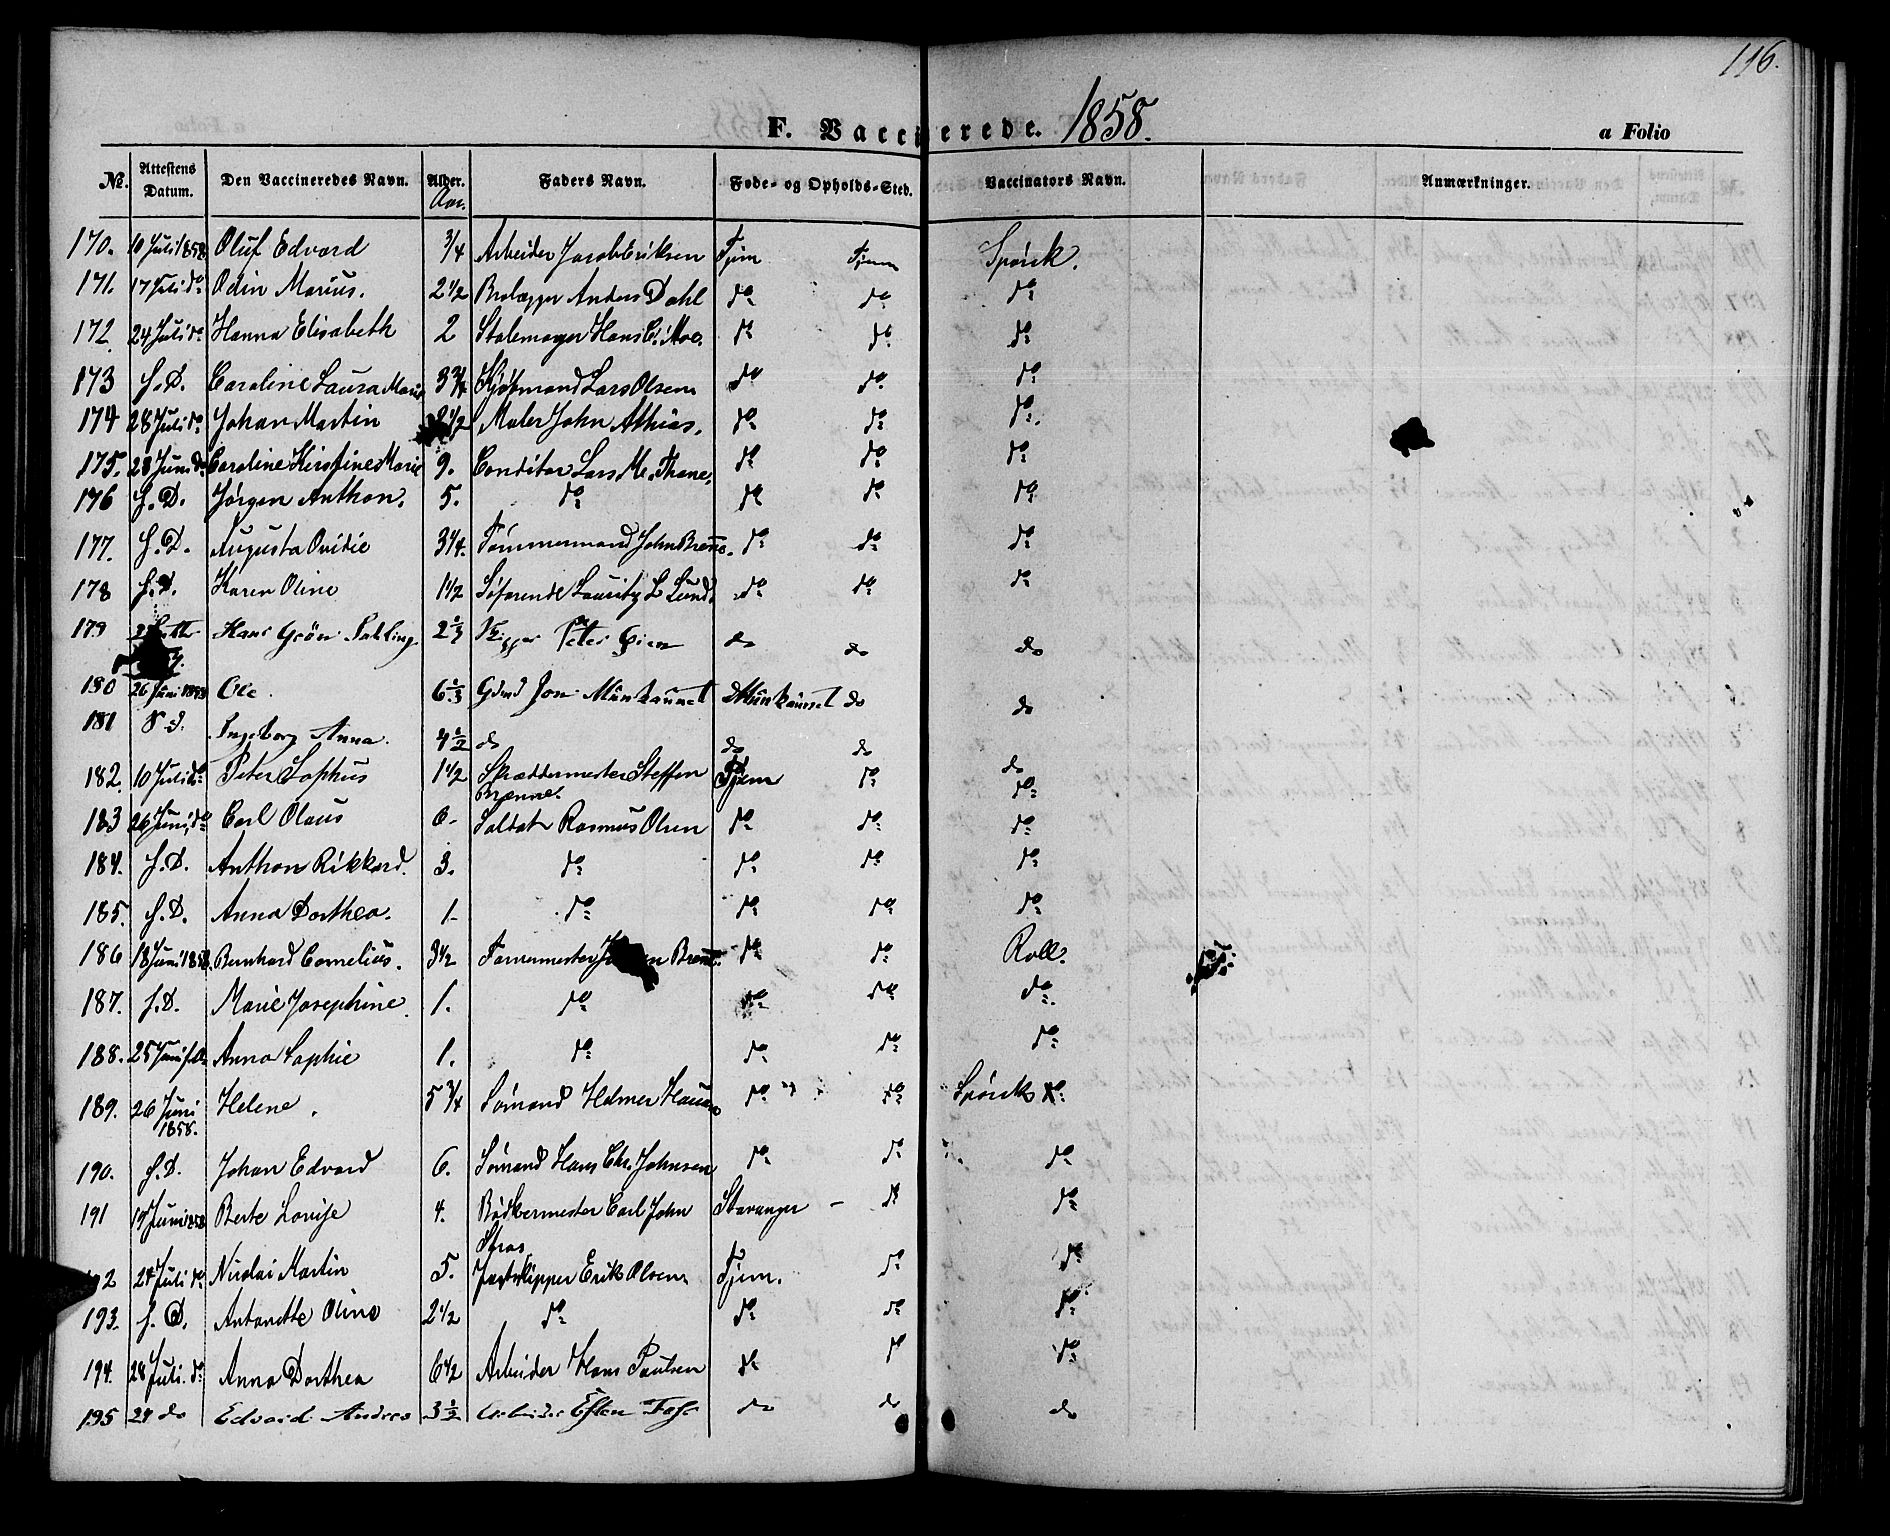 116.
F. Vaccinerede. 1858.
a Folio
No. Attestens Datum. Den Vaccineredes Navn. Alder. Aar. Faders Navn. Føde- og Opholds-Sted. Vaccinators Navn. Anmærkninger.
170. 10 Juli 1858 Oluf Edvard 3/4 Arbeider Jacob Eriksen Tjem Tjem Spörck.
171. 17 Juli do Odin Marius. 2 1/2 Brolægger Anders Dahl do do do
172. 24 Juli do Hanna Elisabeth 2 Stolemager Hans C. Moe. do do do
173 S. D. Caroline Laura Marie 3 3/4 Kjøbmand Lars Olsen do do do
174 28 Juli do Johan Martin 2 1/2 Maler John Athias. do do do.
175. 28 Juni do Caroline Kirstine Marie 9. Conditor Lars M. Thane, do do do
176 S. D. Jørgen Anthon. 5. do do do do
177. S. D. Augusta Ovidie 3 1/4. Tömmermand John Brenne. do do do
178 S. D. Karen Oline 1 1/2 Søfarende Lauritz L Lund do do do
179 Hans Grön 2 2/3 Peter do do do
180 26 Juni 1858 Ole. 6 2/3 Gdmd Jon Münkaunet Münkaunet do do
181 S. d. Ingeborg Anna. 4 1/2 do do do do
182. 10 Juli do Peter Sophus 1 1/2 Skræddermester Steffen Tjem do do
Brænne.
183 26 Juni do Carl Olaus 6 Soldat Rasmus Olsen do do do
184. S. D. Anthon Rikkard. 3. do do do do
185. S. D. Anna Dorthea. 1 do do do do
186 18 Juni 1858. Bernhard Cornelius. 3 1/2 Brenne. do do Roll.
187. S. D. Marie Josephine. 1. do do do do.
188. 25 Juni Anna Sophie 1. do do do do
189. 26 Juni Helene. 5 3/4 Sömand Helmer do do Spörck do
1858.
190. S. D. Johan Edvard 6. Sömand Hans Chr. Johnsen do do do
191 19 Juni 1858 Berte Lovise 4. Bödkermester Carl John Stavanger – do do
Stras
192 24 Juli do Nicolai Martin 5. Jagtskipper Erik Olsen Tjem. do do
193. S. D. Antonette Oline 2 1/2 do do do do
194. 28 Juli. do Anna Dorthea 6 1/2 Arbeider Hans Paulsen do do do
195 24 do Edvard Andreas 3 1/2 Arbeider Esten do do do